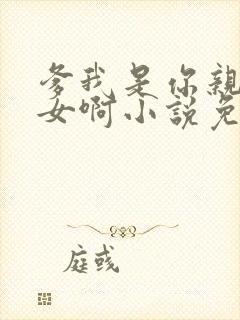 爹我是你親
女啊小說免
庭彧